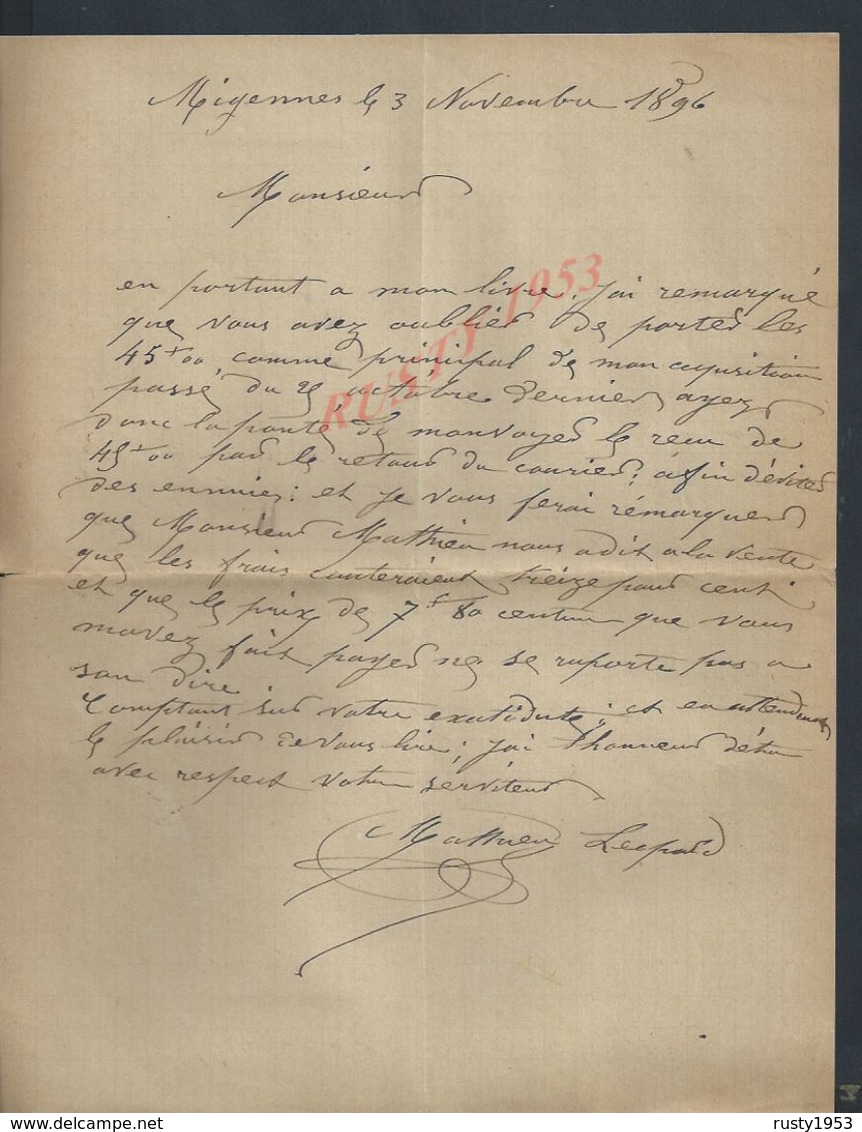 Migennes le 3 Novembre 1896
Monsieur
en portant a mon livre. J'ai remarqué
que vous avez oublier de porter les
45 f 00 comme principal de mon aquisition
passé du 25 octobre dernier ayez
donc la bonté de m'envoyer le recu de
45 f 00 par le retour du courier; afin d'éviter
des ennuies: et je vous ferai rémarquer
que Monsieur Mathieu nous a dit a la vente
que les frais couteraient treize pour cent
et que le prix de 7 f 80 centimes que vous
m'avez fait payer ne se raporte pas a
son dire.
Comptant sur votre exatidute; et en attendant
le plaisir de vous lire; j'ai l'honneur d'être
avec respect votre serviteur
Mathieu Leopold
RUSTY 1953
delcampe.net
rusty1953